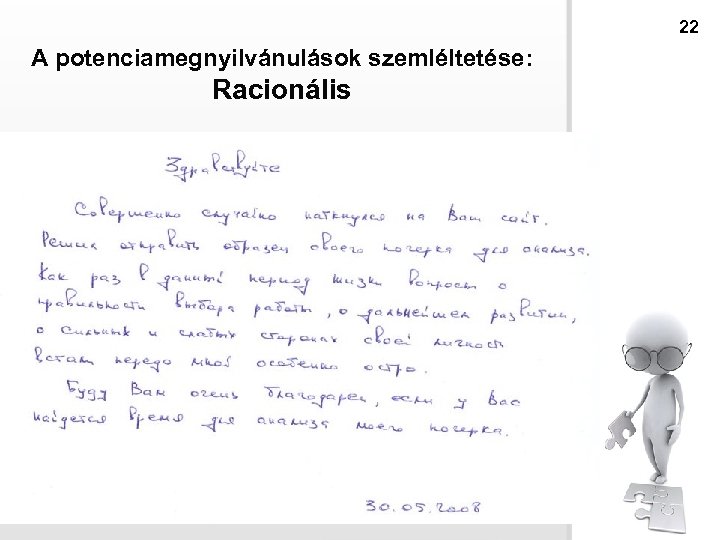 22
A potenciamegnyilvánulások szemléltetése:
Racionális
Здравствуйте
Совершенно случайно наткнулся на Ваш сайт.
Решил отправить образец своего почерка для анализа.
Как раз в данный период жизни вопросы о
правильности выбора работы, о дальнейшем развитии,
о сильных и слабых сторонах своей личности
встали передо мной особенно остро.
Буду Вам очень благодарен, если у Вас
найдется время для анализа моего почерка.
30.05.2008